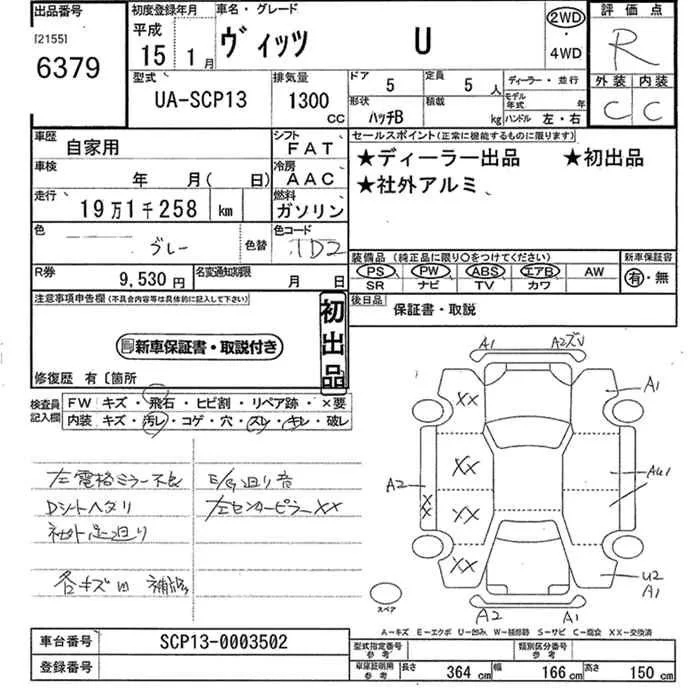 出品番号
[2155]
6379
初度登録年月
平成
15 1 月
車名・グレード
ヴィッツ U
2WD
・
4WD
評価点
R
外装 内装
C C
型式
UA-SCP13
排気量
1300
CC
ドア
5
定員
5 人
ディーラー・並行
形状
ハッチB
積載
kg
モデル年式 年
ハンドル 左・右
車歴
自家用
シフト
FAT
車検
年 月( 日)
冷房
AAC
走行
19万1千258 km
燃料
ガソリン
色
グレー
色替
色コード
1D2
R券
9,530 円
名変通知期限
月 日
セールスポイント(正常に機能するものに限ります)
★ディーラー出品 ★初出品
★社外アルミ
装備品(純正品に限り○をつけてください)
PS PW ABS エアB AW
SR ナビ TV カワ
新車保証書
有・無
後日品
保証書・取説
注意事項申告欄(不具合内容等は具体的に記入して下さい)
新車保証書・取説付き
初出品
修復歴 有〔箇所
検査員
記入欄
FW キズ・飛石・ヒビ割・リペア跡・×要
内装 キズ・汚レ・コゲ・穴・スレ・キレ・破レ
左電格ミラー不良
E/g廻り音
Dシートヘタリ
左センターピラーXX
社外足廻り
各キズ凹 補修
A1 A2ズV
XX
A1
A2
XX
AU1
XX
XX
XX
U2
A1
A2 A1
スペア
A-キズ E-エクボ U-凹み W-補修跡 S-サビ C-腐食 XX-交換済
車台番号
SCP13-0003502
登録番号
型式指定番号
参考
類別区分番号
参考
車庫証明用
参考
長さ
364 cm
幅
166 cm
高さ
150 cm